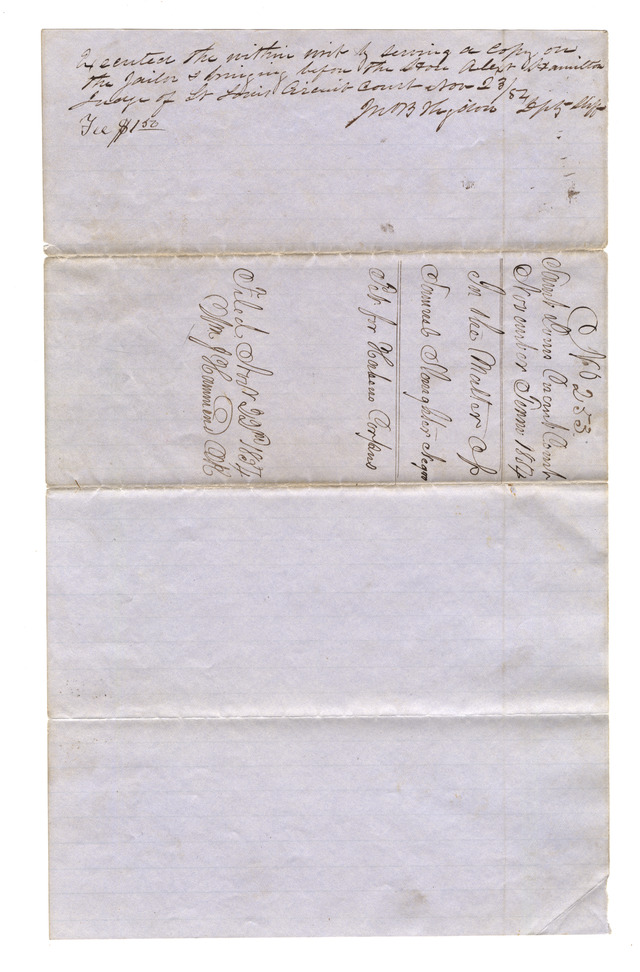 Executed the within writ by serving a Copy on
the Jailor & bringing before the Hon Alexr Hamilton
Judge of St Louis Circuit Court Nov 23/54
Jno B Higdon Dpty Shff
Fee $1.50
No 253.
Saint Louis Circuit Court
November Term 1854
In the Matter Of
Samuel Slaughter Negro
Pet. for Habeas Corpus
Filed Novr 22nd 1854
Wm J Hammond Clk